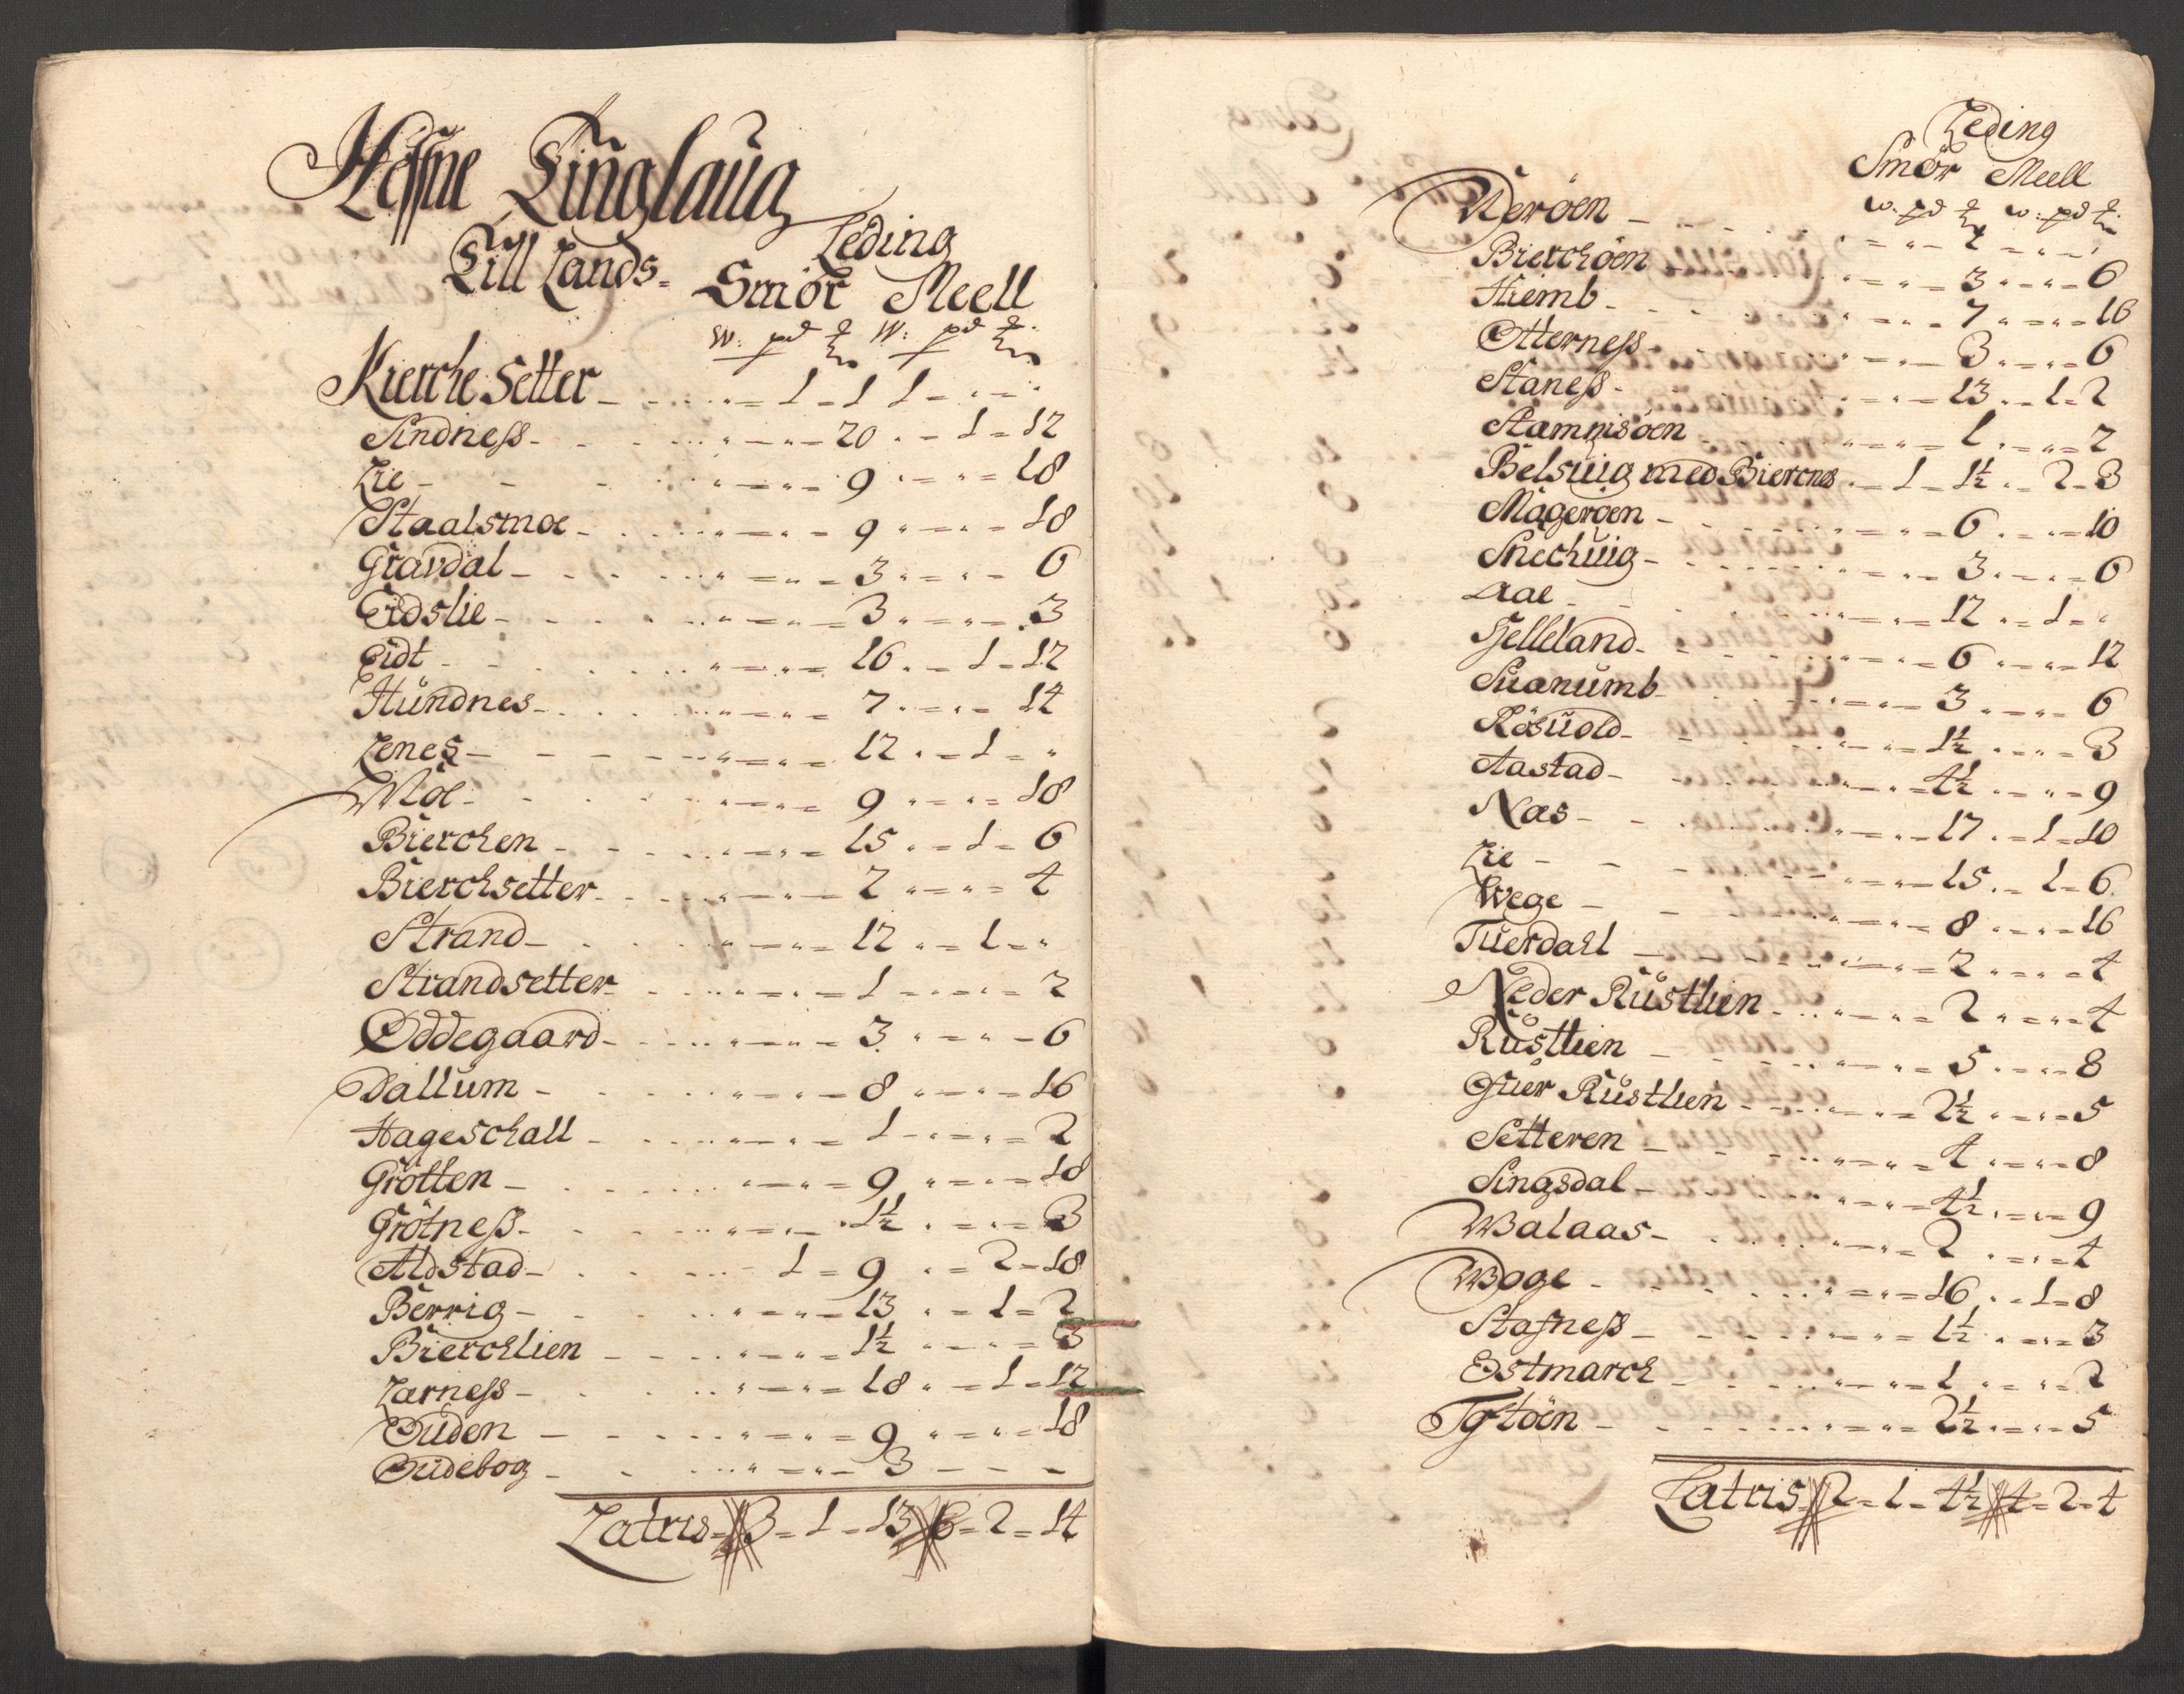 Hefne Tinglaug
Till Lands. Leding
Smör Meell
W: pd ℔ W: pd ℔
Kierchesetter - " = 1 = 1 1 = " = "
Sindness - " = " = 20 " = 1 = 12
Lie - " = " = 9 " = " = 18
Staalsmoe - " = " = 9 " = " = 18
Gravdal - " = " = 3 " = " = 6
Eidslie - " = " = 3 " = " = 3
Eidt - " = " = 16 " = 1 = 12
Hundnes - " = " = 7 " = " = 14
Lenes - " = " = 12 " = 1 = "
Moe - " = " = 9 " = " = 18
Bierchen - " = " = 15 " = 1 = 6
Bierchsetter - " = " = 2 " = " = 4
Strand - " = " = 12 " = 1 = "
Strandsetter - " = " = 1 " = " = 2
Oddegaard - " = " = 3 " = " = 6
Dallum - " = " = 8 " = " = 16
Hageschall - " = " = 1 " = " = 2
Grötten - " = " = 9 " = " = 18
Grötness - " = " = 1½ " = " = 3
Aldstad - " = 1 = 9 " = 2 = 18
Berrig - " = " = 13 " = 1 = 2
Bierchlien - " = " = 1½ " = " = 3
Larness - " = " = 18 " = 1 = 12
Ouden - " = " = 9 " = " = 18
Oudebog - " = " = 3 - - -
Latris = 3 = 1 = 13 6 = 2 = 14
Leding
Smör Meell
w: pd ℔ w: pd ℔
Werøen - " = " = 2 = " = "
Bierchöen " = " = 3 " = " = 6
Hiemb - " = " = 7 " = " = 16
Otterness - " = " = 3 " = " = 6
Staness - " = " = 13 " = 1 = 2
Stamnisöen " = " = 1 " = " = 2
Belsuig med Biercnes " = 1 = 1½ " = 2 = 3
Magerøen - " = " = 6 " = " = 10
Snechuig - " = " = 3 " = " = 6
Aae - " = " = 12 " = 1 = "
Helleland - " = " = 6 " = " = 12
Suanumb " = " = 3 " = " = 6
Rösuold - " = " = 1½ " = " = 3
Aastad - " = " = 4½ " = " = 9
Nas - " = " = 17 " = 1 = 10
Lie - " = " = 15 " = 1 = 6
Wege - " = " = 8 " = " = 16
Tuerdall - " = " = 2 " = " = 4
Neder Rustlien - " = " = 2 " = " = 4
Rustlien - " = " = 5 " = " = 8
Ofuer Rustlien - " = " = 2½ " = " = 5
Setteren - " = " = 4 " = " = 8
Singsdal - " = " = 4½ " = " = 9
Walaas - " = " = 2 " = " = 4
Woge - " = " = 16 " = 1 = 8
Stafness - " = " = 1½ " = " = 3
Ostmarch - " = " = 1 " = " = 2
Tystöen - " = " = 2½ " = " = 5
Latris = 2 = 1 = 4½ 4 = 2 = 4